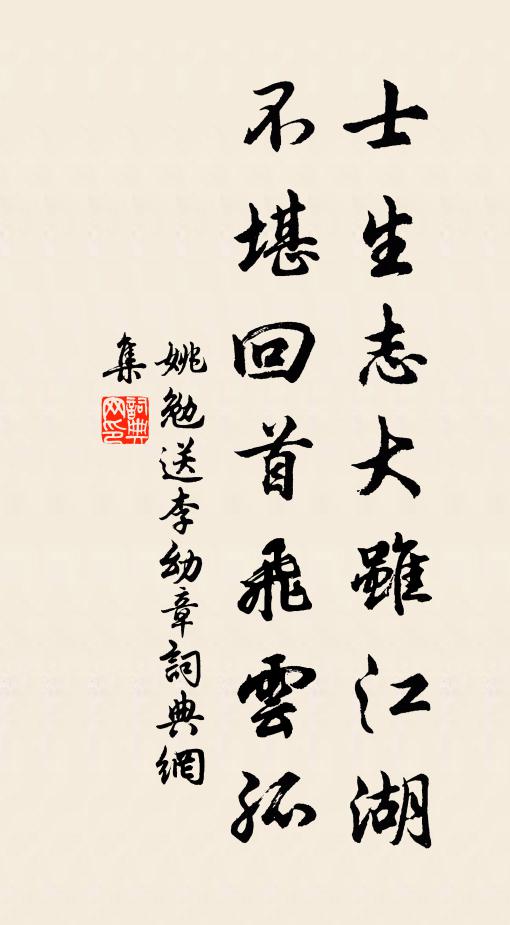 士生志大雖江湖
不堪回首飛雲孤
姚勉送李幼章詞典網
集
詞典
网印